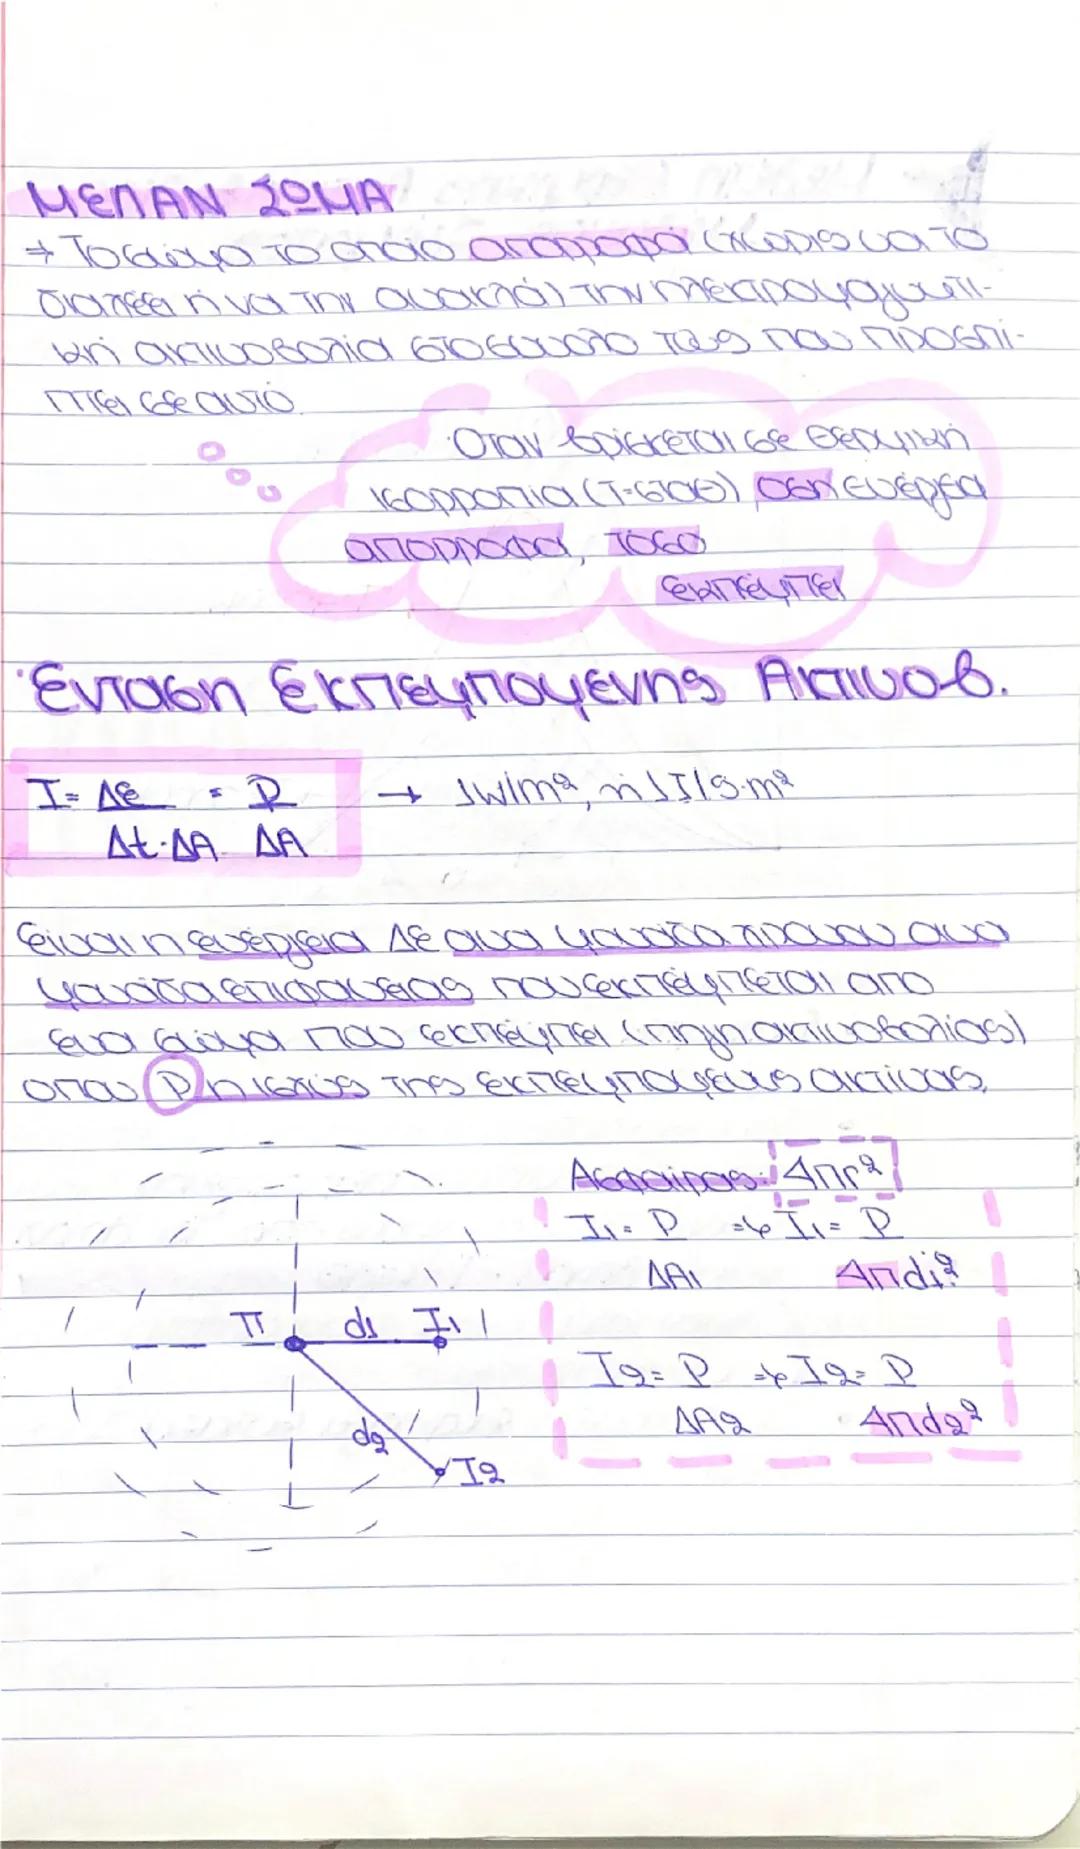 ΜΕΛΑΝ ΣΩΜΑ
→ Το σώμα το οποίο απορροφά (χωρίς να το
διαπερά ή να την ανακλά) την ηλεκτρομαγνητι-
κή ακτινοβολία στο σύνολο της που προσπί-
πτει σε αυτό.
Όταν βρίσκεται σε θερμική
ισορροπία (Τ=σταθ) όση ενέργεια
απορροφά, τόσο
εκπέμπει
Ένταση Εκπεμπόμενης Ακτινοβ.
I = ΔE = P → 1W/m², ή 1J/s·m²
Δt·ΔA ΔA
Είναι η ενέργεια ΔΕ ανα μονάδα χρόνου ανα
μονάδα επιφάνειας που εκπέμπεται από
ένα σώμα που εκπέμπει (πηγή ακτινοβολίας)
όπου P η ισχύς της εκπεμπόμενης ακτίνας.
Aσφαίρας: 4πr²
I1 = P => I1 = P
ΔA1 4πd1²
Π d1 I1
I2 = P => I2 = P
ΔA2 4πd2²
d2
I2